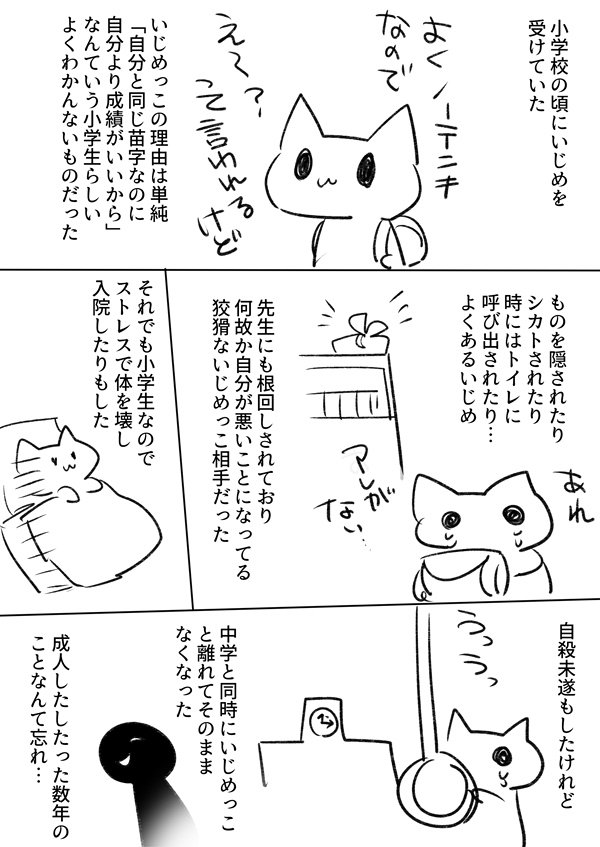 小学校の頃にいじめを
受けていた
よくノーテンキ
なので
え～？
って言われる
けど
いじめっこの理由は単純
「自分と同じ苗字なのに
自分より成績がいいから」
なんていう小学生らしい
よくわかんないものだった
ものを隠されたり
シカトされたり
時にはトイレに
呼び出されたり…
よくあるいじめ
あれ
アレが
ない…
先生にも根回しされており
何故か自分が悪いことになってる
狡猾ないじめっこ相手だった
それでも小学生なので
ストレスで体を壊し
入院したりもした
自殺未遂もしたけれど
うっうっ
中学と同時にいじめっこ
と離れてそのまま
なくなった
成人したしたった数年の
ことなんて忘れ…